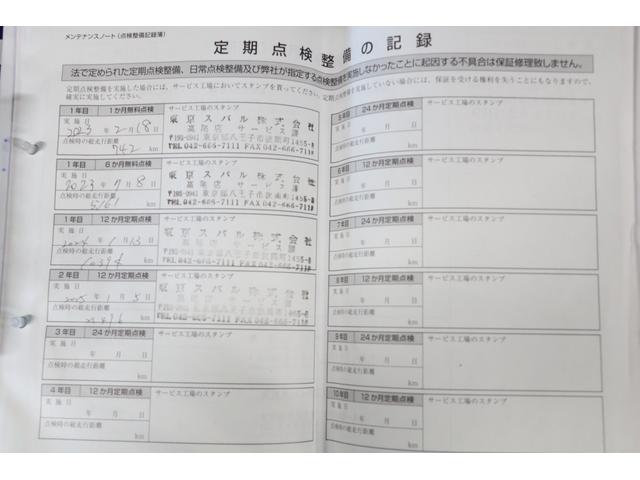 メンテナンスノート(点検整備記録簿)
定期点検整備の記録
法で定められた定期点検整備、日常点検整備及び弊社が指定する点検整備を実施しなかったことに起因する不具合は保証修理致しません。
定期点検整備を実施した場合には、サービス工場においてスタンプを貰ってください。定期点検整備を実施していない場合には、保証を受ける権利を失うことにもなりますので、
確実に実施してください。
1年目 1か月無料点検 サービス工場のスタンプ
実施日
2023年2月18日
点検時の総走行距離
742 km
東京スバル株式会社
高尾店 サービス課
〒193-0941 東京都八王子市狭間町1455-8
TEL 042-666-7111 FAX 042-666-711
1年目 6か月無料点検 サービス工場のスタンプ
実施日
2023年7月8日
点検時の総走行距離
5161 km
東京スバル株式会社
高尾店 サービス課
〒193-0941 東京都八王子市狭間町1455-8
TEL 042-666-7111 FAX 042-666-711
1年目 12か月定期点検 サービス工場のスタンプ
実施日
2024年1月13日
点検時の総走行距離
km
東京スバル株式会社
高尾店 サービス課
〒193-0941 東京都八王子市狭間町1455-8
TEL 042-666-7111 FAX 042-666-711
2年目 12か月定期点検 サービス工場のスタンプ
実施日
2025年1月5日
点検時の総走行距離
km
東京スバル株式会社
高尾店 サービス課
〒193-0941 東京都八王子市狭間町1455-8
TEL 042-666-7111 FAX 042-666-711
3年目 24か月定期点検 サービス工場のスタンプ
実施日
年 月 日
点検時の総走行距離
km
4年目 12か月定期点検 サービス工場のスタンプ
実施日
年 月 日
点検時の総走行距離
km
5年目 24か月定期点検 サービス工場のスタンプ
実施日
年 月 日
点検時の総走行距離
km
6年目 12か月定期点検 サービス工場のスタンプ
実施日
年 月 日
点検時の総走行距離
km
7年目 24か月定期点検 サービス工場のスタンプ
実施日
年 月 日
点検時の総走行距離
km
8年目 12か月定期点検 サービス工場のスタンプ
実施日
年 月 日
点検時の総走行距離
km
9年目 24か月定期点検 サービス工場のスタンプ
実施日
年 月 日
点検時の総走行距離
km
10年目 12か月定期点検 サービス工場のスタンプ
実施日
年 月 日
点検時の総走行距離
km